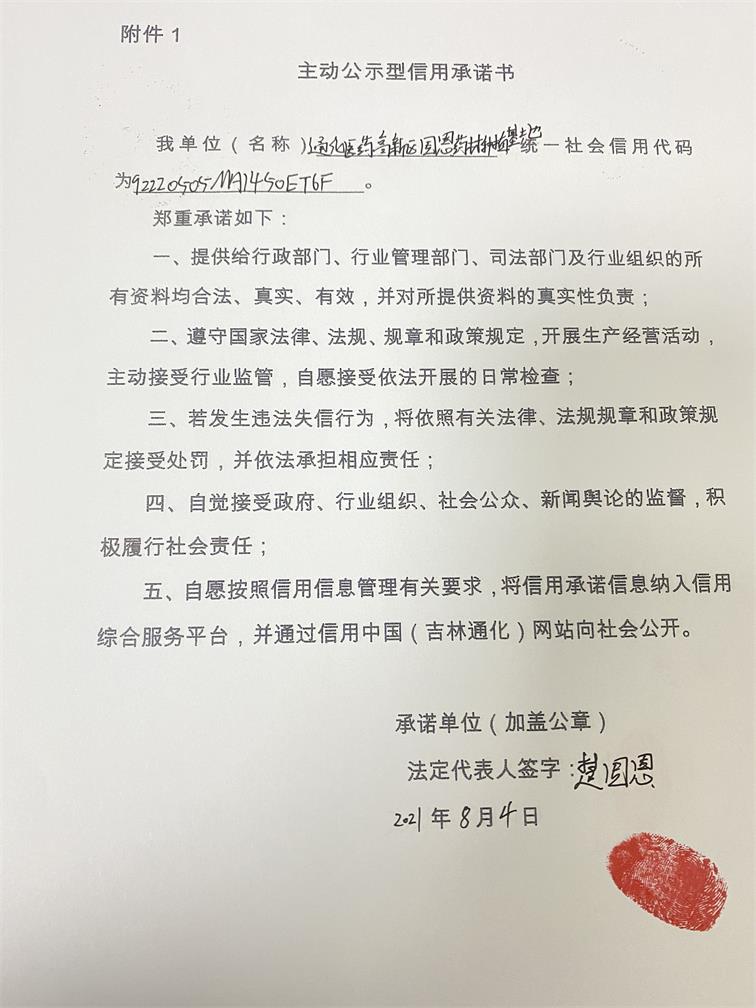 附件1
主动公示型信用承诺书
我单位（名称）通化医药高新区国恩药材种植基地统一社会信用代码
为92220505MA1450ET6F。
郑重承诺如下：
一、提供给行政部门、行业管理部门、司法部门及行业组织的所
有资料均合法、真实、有效，并对所提供资料的真实性负责；
二、遵守国家法律、法规、规章和政策规定，开展生产经营活动，
主动接受行业监管，自愿接受依法开展的日常检查；
三、若发生违法失信行为，将依照有关法律、法规规章和政策规
定接受处罚，并依法承担相应责任；
四、自觉接受政府、行业组织、社会公众、新闻舆论的监督，积
极履行社会责任；
五、自愿按照信用信息管理有关要求，将信用承诺信息纳入信用
综合服务平台，并通过信用中国（吉林通化）网站向社会公开。
承诺单位（加盖公章）
法定代表人签字：楚国恩
2021年8月4日